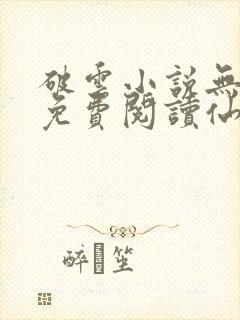 破雲小說無
免費閱讀仙
醉 笙